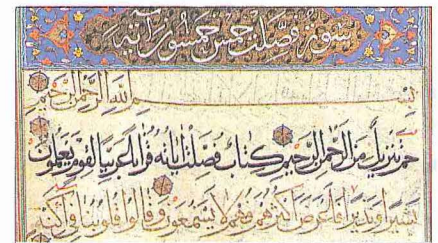 سورة فصلت خمس وخمسون آية
بسم الله الرحمن الرحيم
حم تنزيل من الرحمن الرحيم كتاب فصلت آياته قرآنا عربيا لقوم يعلمون
بشيرا ونذيرا فأعرض أكثرهم فهم لا يسمعون وقالوا قلوبنا في أكنة